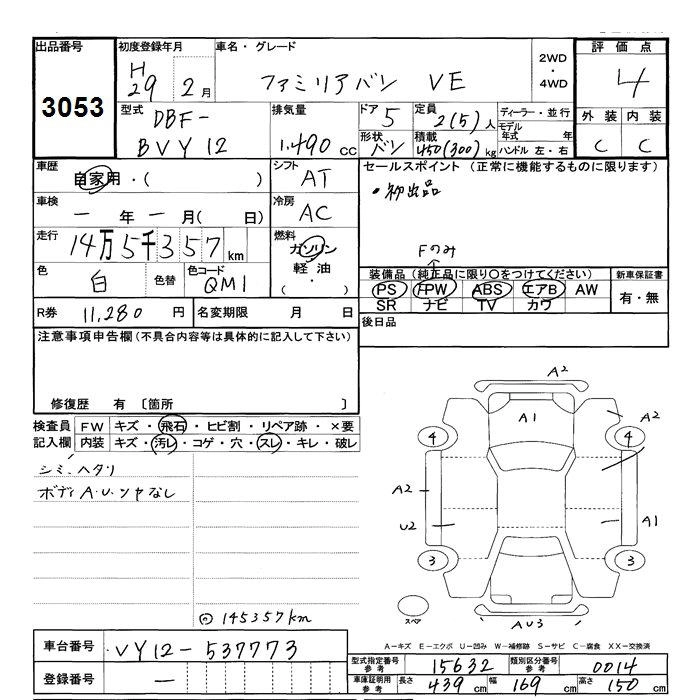 出品番号
3053
初度登録年月
H
29 2月
車名・グレード
ファミリアバン VE
2WD
・
4WD
評価点
4
外装 内装
C C
型式
DBF-
BVY12
排気量
1.490 cc
ドア 5
形状 バン
定員 2(5)人
積載 450(300)kg
ディーラー・並行
モデル
年式 年
ハンドル 左・右
車歴
自家用・( )
シフト
AT
車検
― 年 ― 月( 日)
冷房
AC
走行
14万5千357km
燃料
ガソリン
軽油
( ・ )
色
白
色替
色コード
QM1
R券 11,280 円
名変期限 月 日
セールスポイント(正常に機能するものに限ります)
・初出品
Fのみ
装備品(純正品に限り〇をつけてください)
PS PW ABS エアB AW
SR ナビ TV カワ
新車保証書
有・無
後日品
注意事項申告欄(不具合内容等は具体的に記入して下さい)
修復歴 有 〔箇所 〕
検査員
記入欄
FW キズ・飛石・ヒビ割・リペア跡・×要
内装 キズ・汚レ・コゲ・穴・スレ・キレ・破レ
シミ、ヘタリ
ボディA.U.ツヤなし
◎145357km
A2
A1
A2
4
4
A2
U2
A1
3
3
スペア
AU3
A－キズ E－エクボ U－凹み W－補修跡 S－サビ C－腐食 XX－交換済
車台番号 VY12-537773
登録番号 ―
型式指定番号
参考
15632
類別区分番号
参考
0014
車庫証明用
参考
長さ 439 cm 幅 169 cm 高さ 150 cm